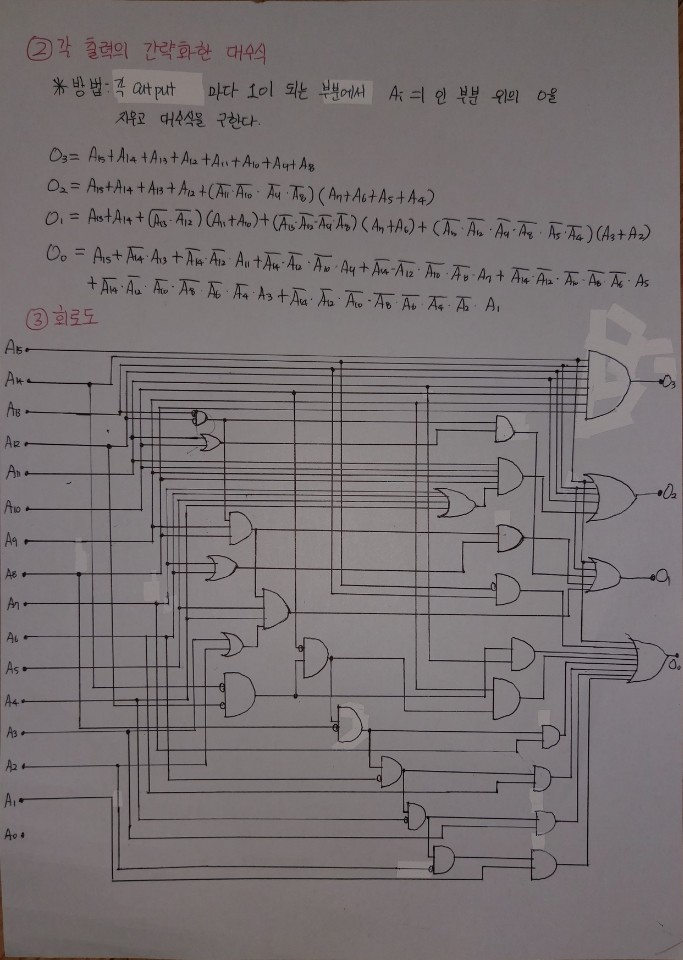 ② 각 출력의 간략화한 대수식
* 방법: 각 output 마다 1이 되는 부분에서 Ai=1 인 부분 위의 0을
지우고 대수식을 구한다.
O₃= A₁₅+A₁₄+A₁₃+A₁₂+A₁₁+A₁₀+A₉+A₈
O₂= A₁₅+A₁₄+A₁₃+A₁₂+(A̅₁₁·A̅₁₀·A̅₉·A̅₈)(A₇+A₆+A₅+A₄)
O₁ = A₁₅+A₁₄+(A̅₁₃·A̅₁₂)(A₁₁+A₁₀)+(A̅₁₃·A̅₁₂·A̅₉·A̅₈)(A₇+A₆)+(A̅₁₃·A̅₁₂·A̅₉·A̅₈·A̅₅·A̅₄)(A₃+A₂)
O₀ = A₁₅+A̅₁₄·A₁₃+A̅₁₄·A̅₁₂·A₁₁+A̅₁₄·A̅₁₂·A̅₁₀·A₉+A̅₁₄·A̅₁₂·A̅₁₀·A̅₈·A₇+A̅₁₄·A̅₁₂·A̅₁₀·A̅₈·A̅₆·A₅
+A̅₁₄·A̅₁₂·A̅₁₀·A̅₈·A̅₆·A̅₄·A₃+A̅₁₄·A̅₁₂·A̅₁₀·A̅₈·A̅₆·A̅₄·A̅₂·A₁
③ 회로도
A₁₅
A₁₄
A₁₃
A₁₂
A₁₁
A₁₀
A₉
A₈
A₇
A₆
A₅
A₄
A₃
A₂
A₁
A₀
O₃
O₂
O₁
O₀